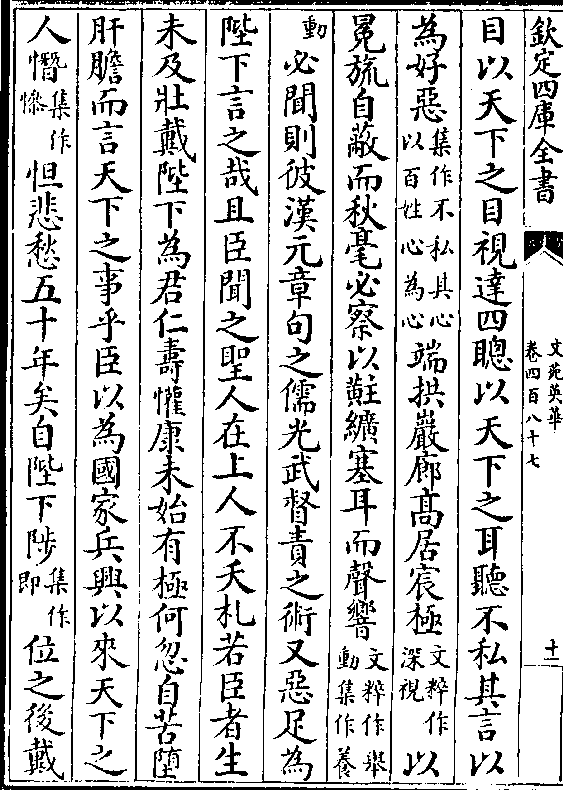 欽定四庫全書
文苑英華
卷四百八十七
十一
目以天下之目視達四聰以天下之耳聽不私其言以
為好惡集作不私其心以百姓心為心端拱巖廊髙居宸極文粹作深視以
冕旒自蔽而秋毫必察以黈纊塞耳而聲響文粹作舉動集作養
動必聞則彼漢元章句之儒光武督責之術又惡足為
陛下言之哉且臣聞之聖人在上人不夭札若臣者生
未及壯戴陛下為君仁壽懽康未始有極何忽自苦墮
肝膽而言天下之事乎臣以為國家兵興以來天下之
人憯集作慘怛悲愁五十年矣自陛下陟集作即位之後戴